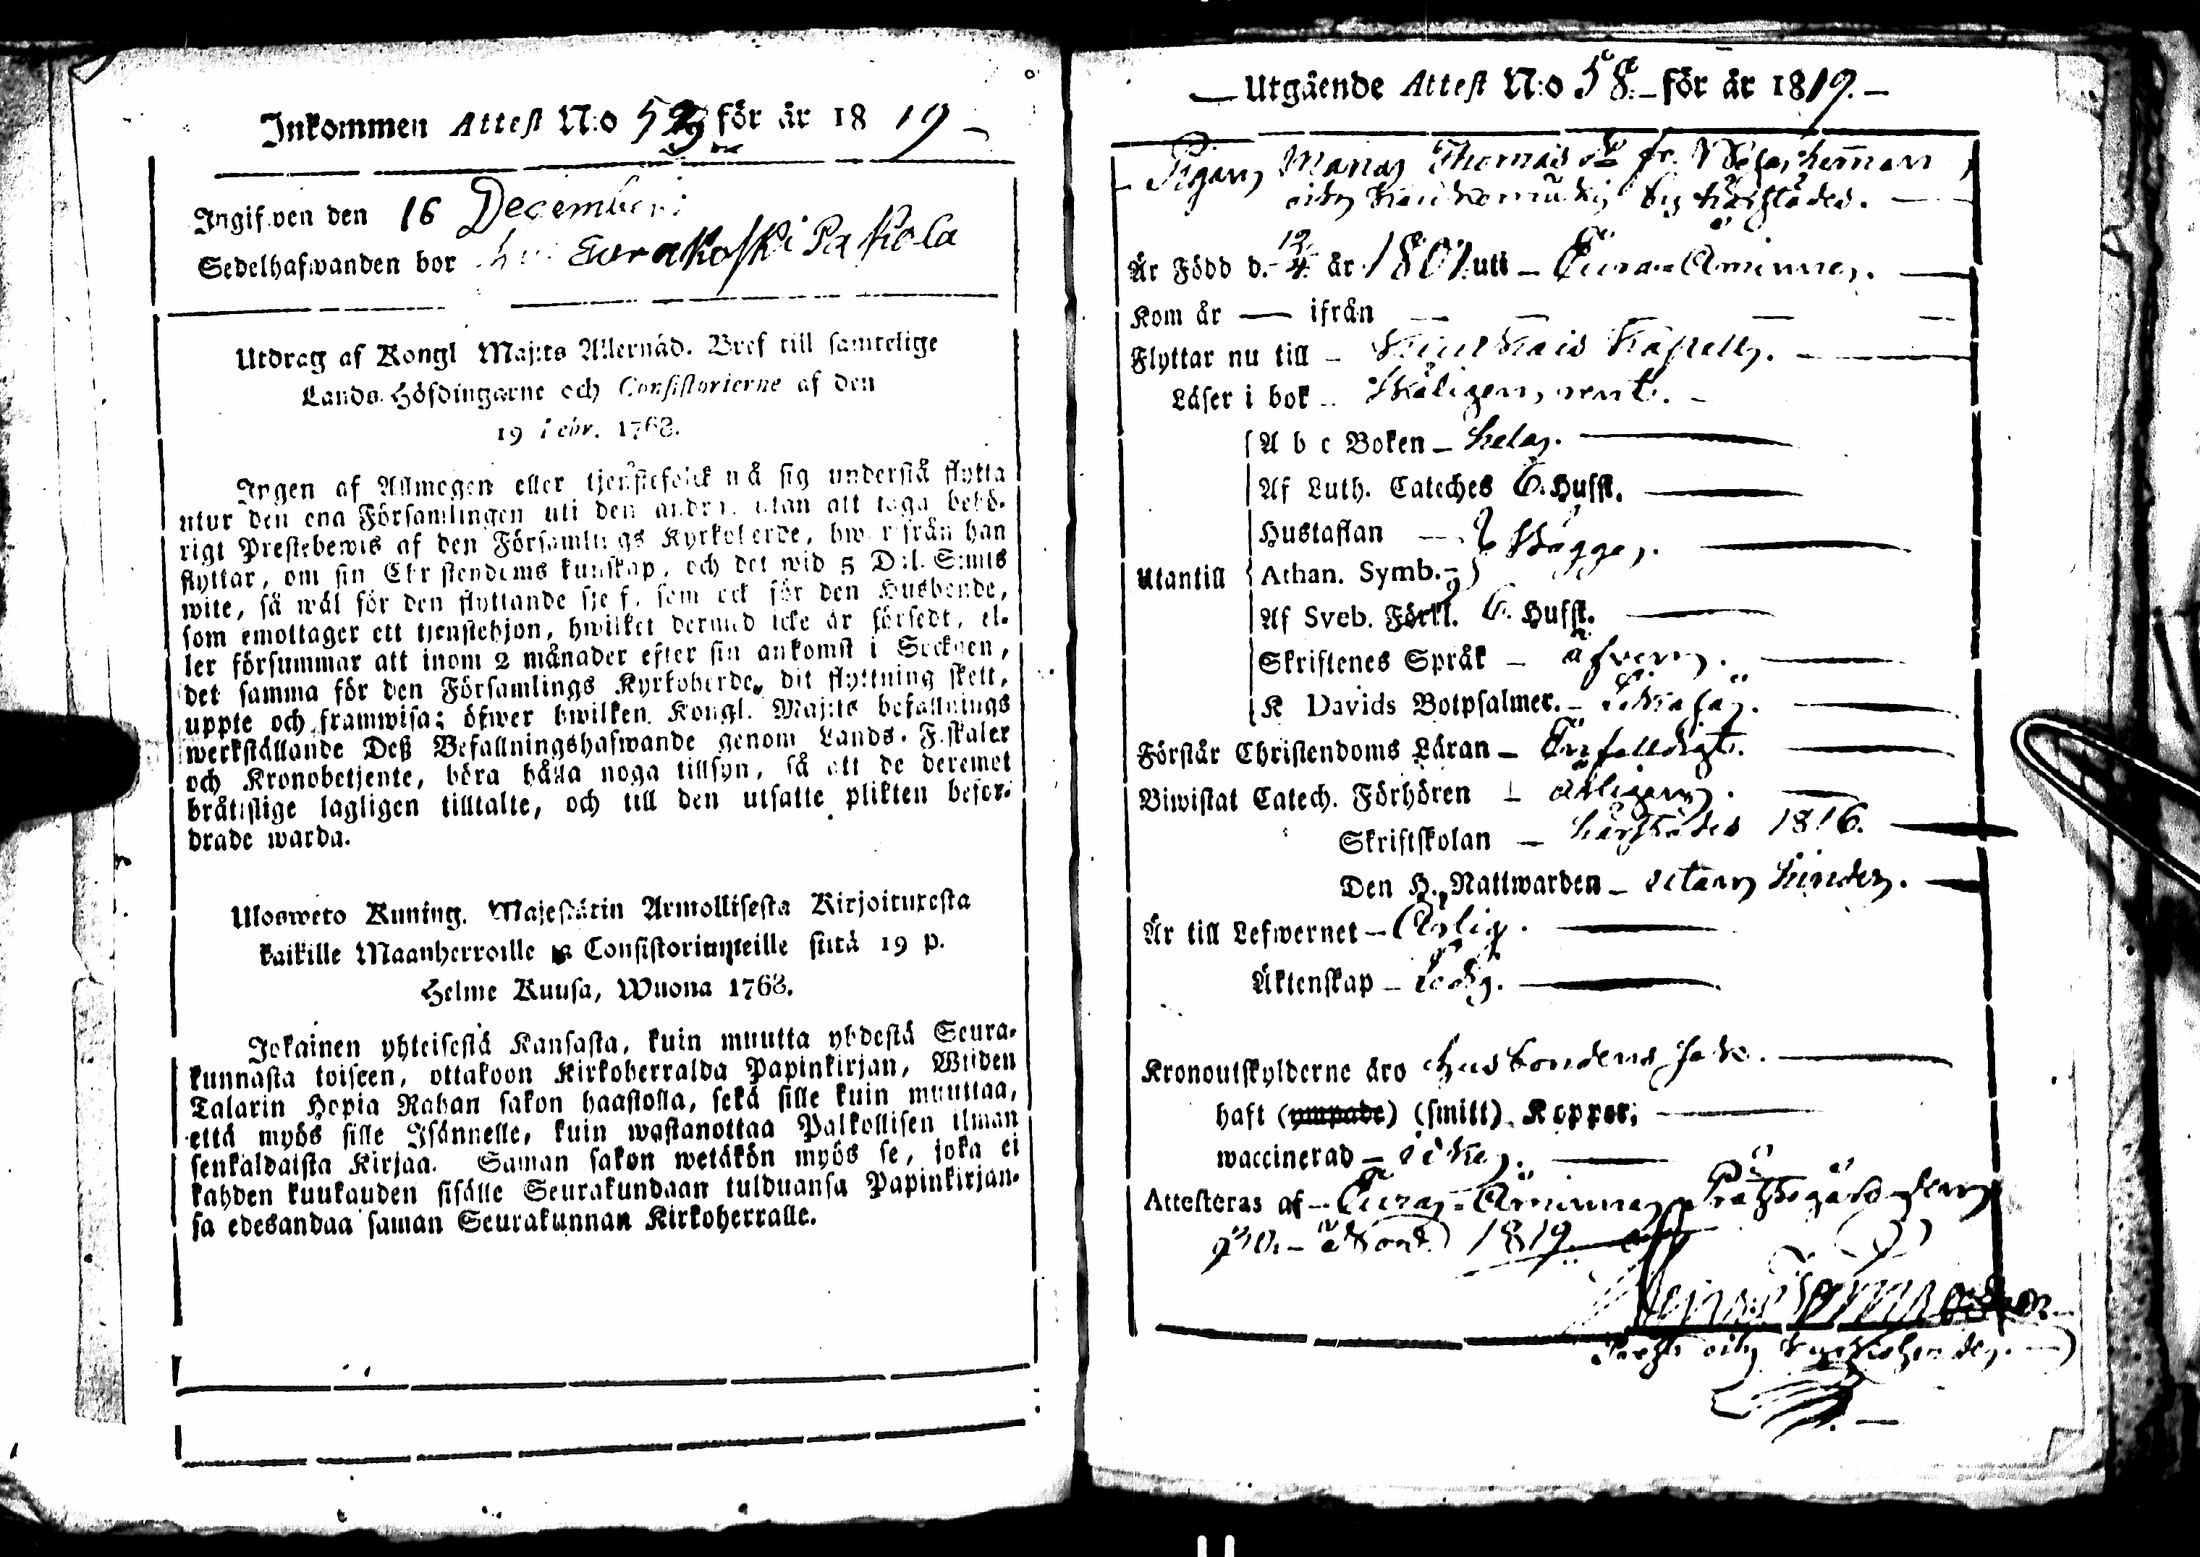 Inkommen Attest N:o 59 för år 1819
Ingifwen den 16 Decemberi
Sedelhafwanden bor Eurakoski Pakola
Utdrag af Kongl Maj:ts Allernåd. Bref till samtelige
Lands-Höfdingarne och Consistorierne af den
19 Febr. 1768.
Ingen af Allmogen eller tjenstefolck må sig understå flytta
utur den ena Församlingen uti den andra, utan att taga behö-
rigt Prestebewis af den Församlings Kyrkoherde, hwarifrån han
flyttar, om sin Christendoms kunskap, och det wid 5 Dal. S:mts
wite, så wäl för den flyttande sjelf, som ock för den Husbonde,
som emottager ett tjenstehjon, hwilket dermed icke är försedt, el-
ler försummar att inom 2 månader efter sin ankomst i Socknen,
det samma för den Församlings Kyrkoherde, dit flyttning skett,
uppte och framwisa; öfwer hwilken Kongl. Maj:ts befallnings
werkställande Deß Befallningshafwande genom Lands-Fiskaler
och Kronobetjente, böra hålla noga tillsyn, så att de deremot
bråtislige lagligen tilltalte, och till den utsatte plikten befor-
drade warda.
Ulosweto Kuning. Majestätin Armollisesta Kirjoituxesta
kaikille Maanherroille ja Consistoriumeille siitä 19 p.
Helme Kuusa, Wuona 1768.
Jokainen yhteisestä Kansasta, kuin muutta yhdestä Seura-
kunnasta toiseen, ottakoon Kirkoherralda Papinkirjan, Wiiden
Talarin Hopia Rahan sakon haastolla, sekä sille kuin muuttaa,
että myös sille Isännelle, kuin wastanottaa Palkollisen ilman
senkaldaista Kirjaa. Saman sakon wetäkön myös se, joka ei
kahden kuukauden sisälle Seurakundaan tulduansa Papinkirjan-
sa edesandaa saman Seurakunnan Kirkoherralle.
Utgående Attest N:o 58. för år 1819.
Pigan Maria Thomasdr fr.
by härstädes.
Är Född d. 12/4 år 1801 uti Eura-Åminne.
Kom år — ifrån —
Flyttar nu till Kiukais Kapell.
Läser i bok Skäligen rent.
A b c Boken hela.
Af Luth. Cateches 6. Hufst.
Hustaflan
Athan. Symb. } Bägge.
Utantill
Af Sveb. Förkl. 6. Hufst.
Skriftenes Språk äfven.
K Davids Botpsalmer. Likaså.
Förstår Christendoms Läran Enfaldigt.
Biwistat Catech. Förhören årligen.
Skriftskolan härstädes 1816.
Den H. Nattwarden utan hinder.
Är till Lefwernet Ärlig.
Äktenskap Ledig.
Kronoutskylderne äro husbondens sak.
haft (ympade) (smitt) Koppor;
waccinerad icke.
Attesteras af Eura-Åminne Prästgård den
1819